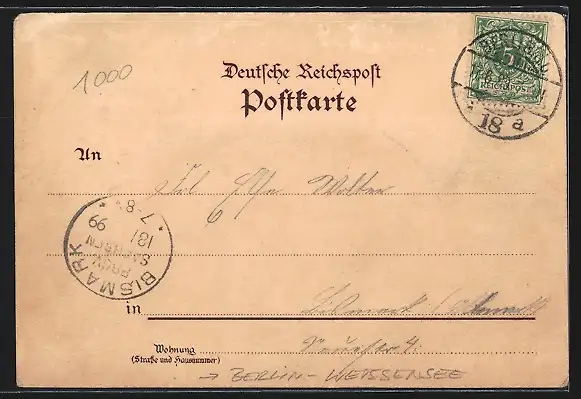 1000
Deutsche Reichspost
Postkarte
5
REICHSPOST
18 a
An
Frl. Else Wolter
BISMARK
PROV.
SACHSEN
18/
99
7-8
in
Bismark
Wohnung
(Straße und Hausnummer)
→ BERLIN-WEISSENSEE